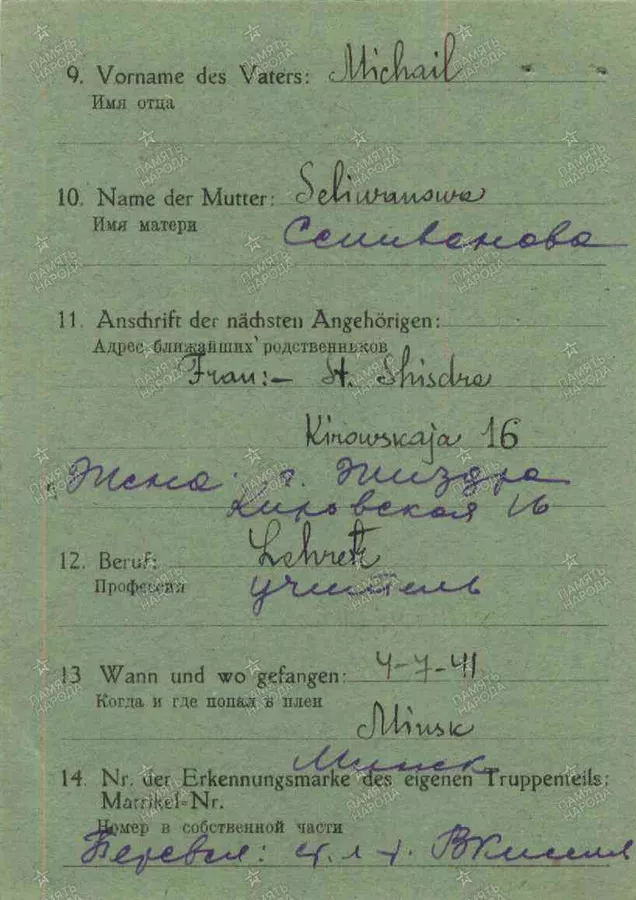 9. Vorname des Vaters: Michail
Имя отца
10. Name der Mutter: Seliwanowa
Имя матери Селиванова
11. Anschrift der nächsten Angehörigen:
Адрес ближайших родственньков
Frau:- St. Shisdra
Kirowskaja 16
Жена: г. Жиздра
Кировская 16
12. Beruf: Lehrer
Профессия учитель
13 Wann und wo gefangen: 4-7-41
Когда и где попал в плен
Minsk
Минск
14. Nr. der Erkennungsmarke des eigenen Truppenteils:
Matrikel-Nr.
Номер в собственной части
Перевел:
ПАМЯТЬ НАРОДА